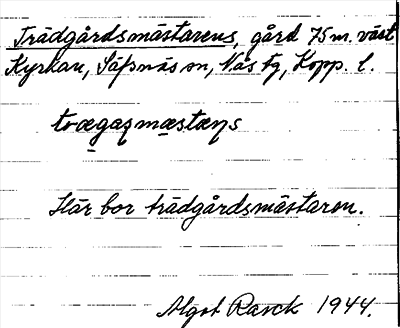 Trädgårdsmästarens, gård 75 m. väst
Kyrkan, Säfsnäs sn, Näs tg, Kopp. l.
Här bor trädgårdsmästaren.
Algot Rarck 1944.